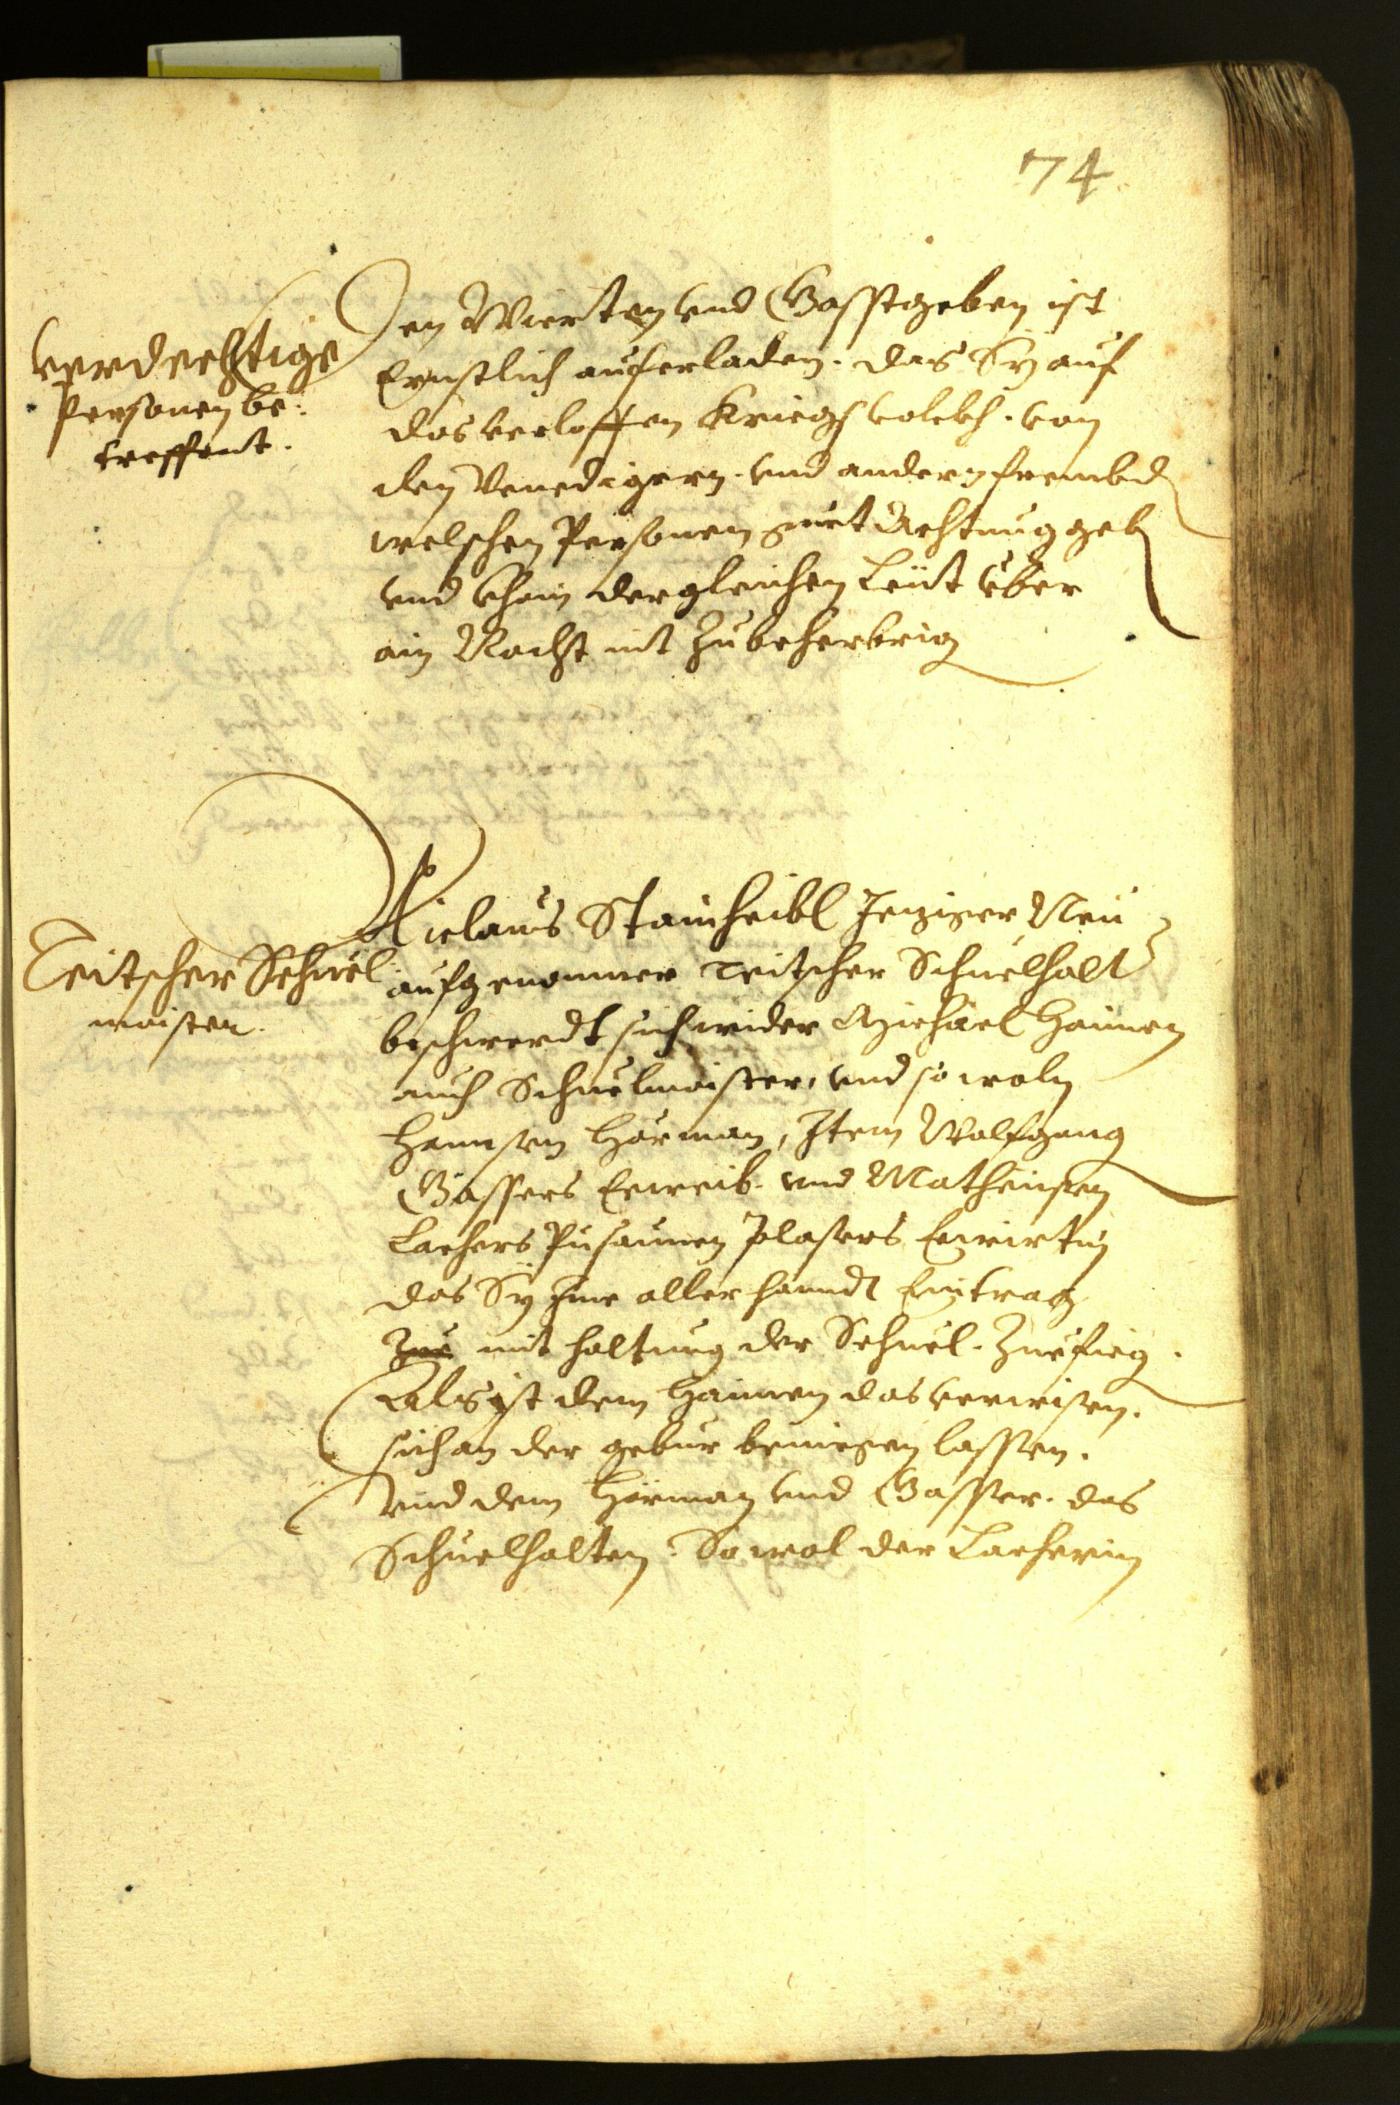 74
Verdechtige
Personen be:
treffent.
Den Wierten vnd Gasstgeben ist
Ernstlich auferladen. das Sy auf
das verloffen Kriegsvolckh. von
den Venedigern. vnd andern frembd
welschen Personen guet Achtung geb
vnd khain dergleichen Leüt über
ain Nacht nit Zubeherbrig
Teitscher Schuel
maister.
Niclaus Stainheibl Jeziger Neu
aufgenomner Teitscher Schuelhalt
beschwerdt sich wider Michäel Hainen
auch Schuelmaister, vnd sowoln
Hannsen Hörman, Item Wolfgang
Gassers Eeweib. vnd Matheusen
Lachers Pusaunen Plasers Eewirtin
das Sy Ime allerhanndt Eintrag
Zue mit haltung der Schuel. Zuefieg.
Als ist dem Hainen das verwisen.
sich an der gebur beniegen lassen.
Vnd dem Hörman vnd Gasser. das
Schuelhalten. Sowol der Lacherin